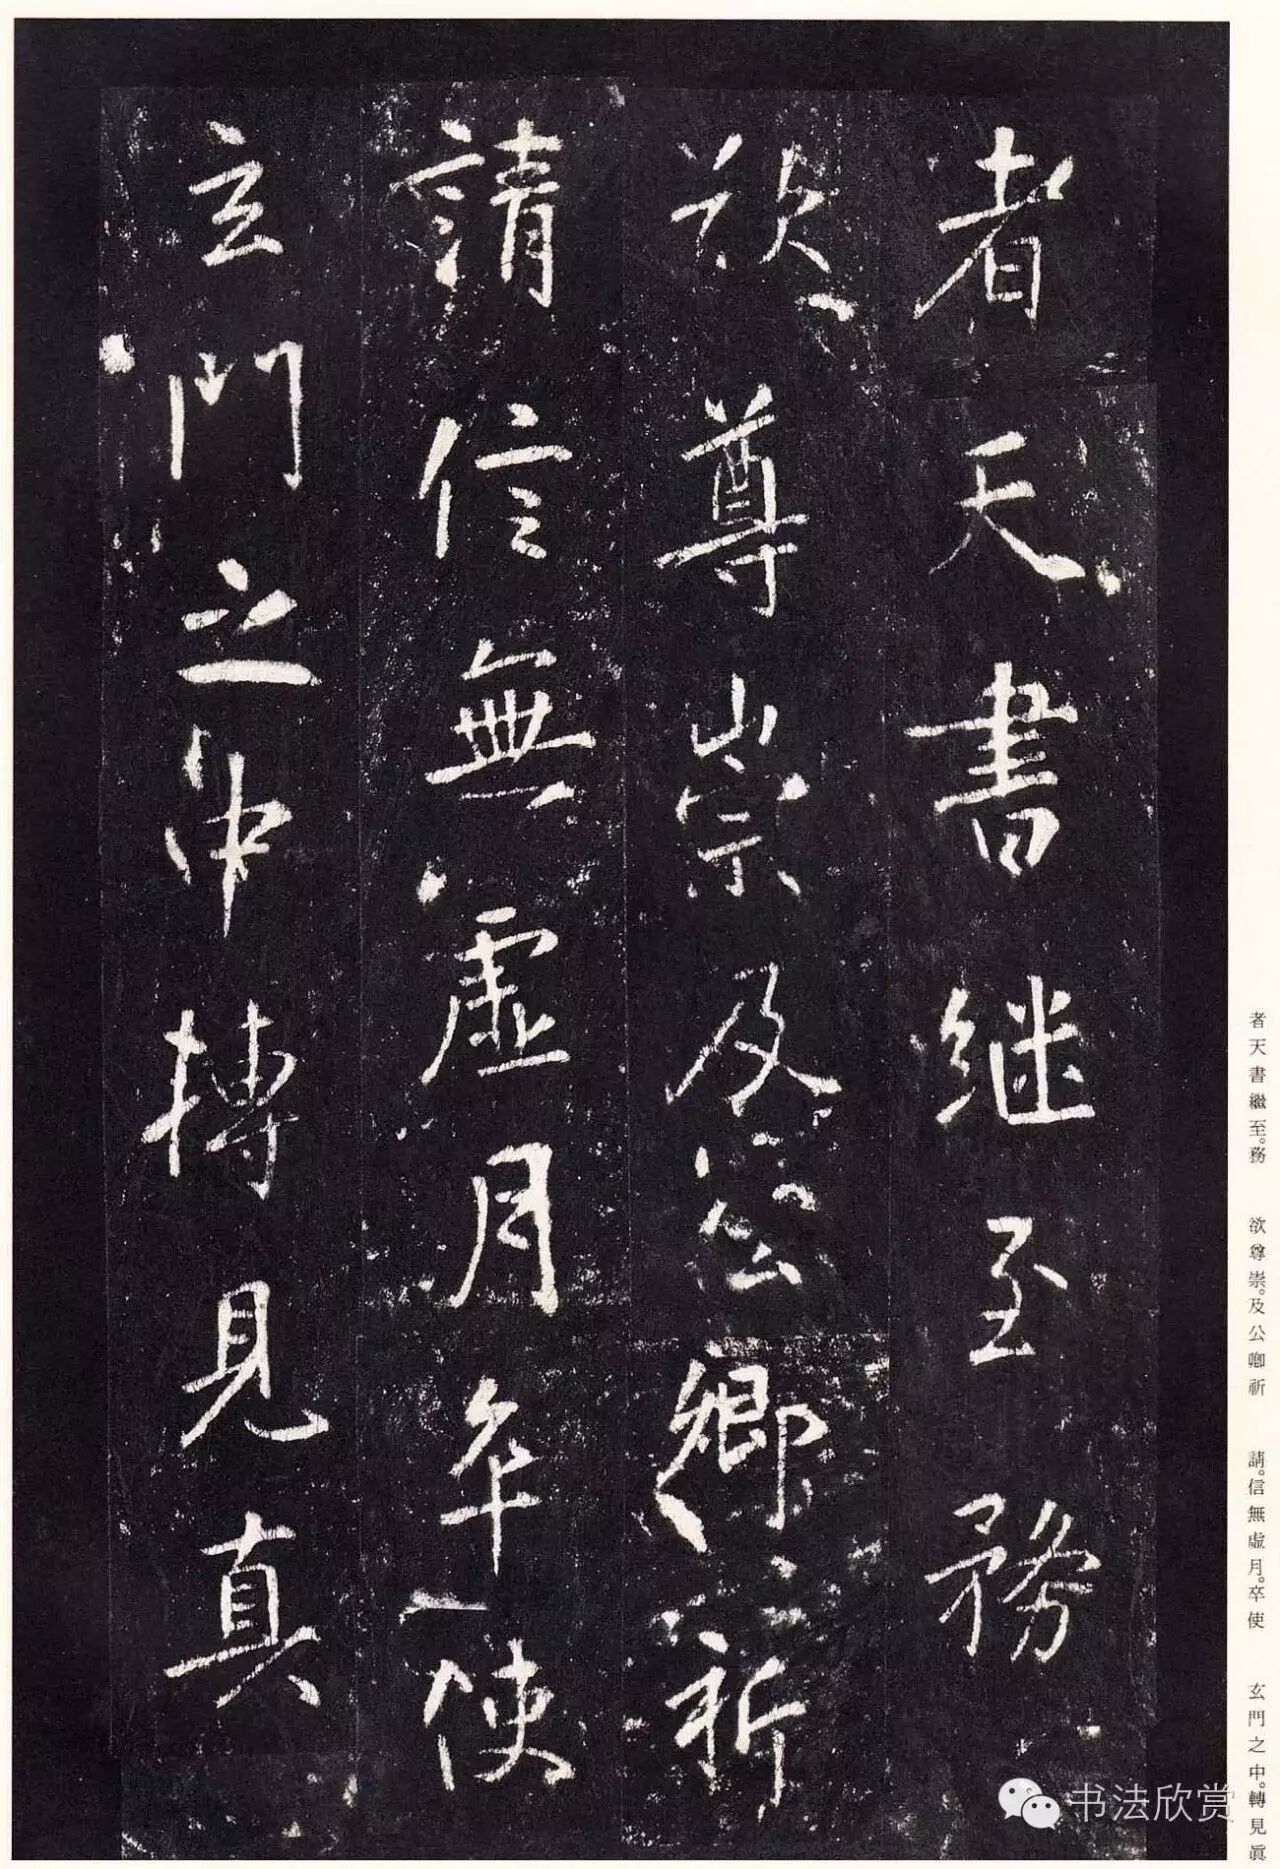 者天書继至務
欲尊崇及公卿祈
請信無虛月卒使
玄門之中轉見真
者天書繼至。務
欲尊崇。及公卿祈
請。信無虛月。卒使
玄門之中。轉見眞
书法欣赏